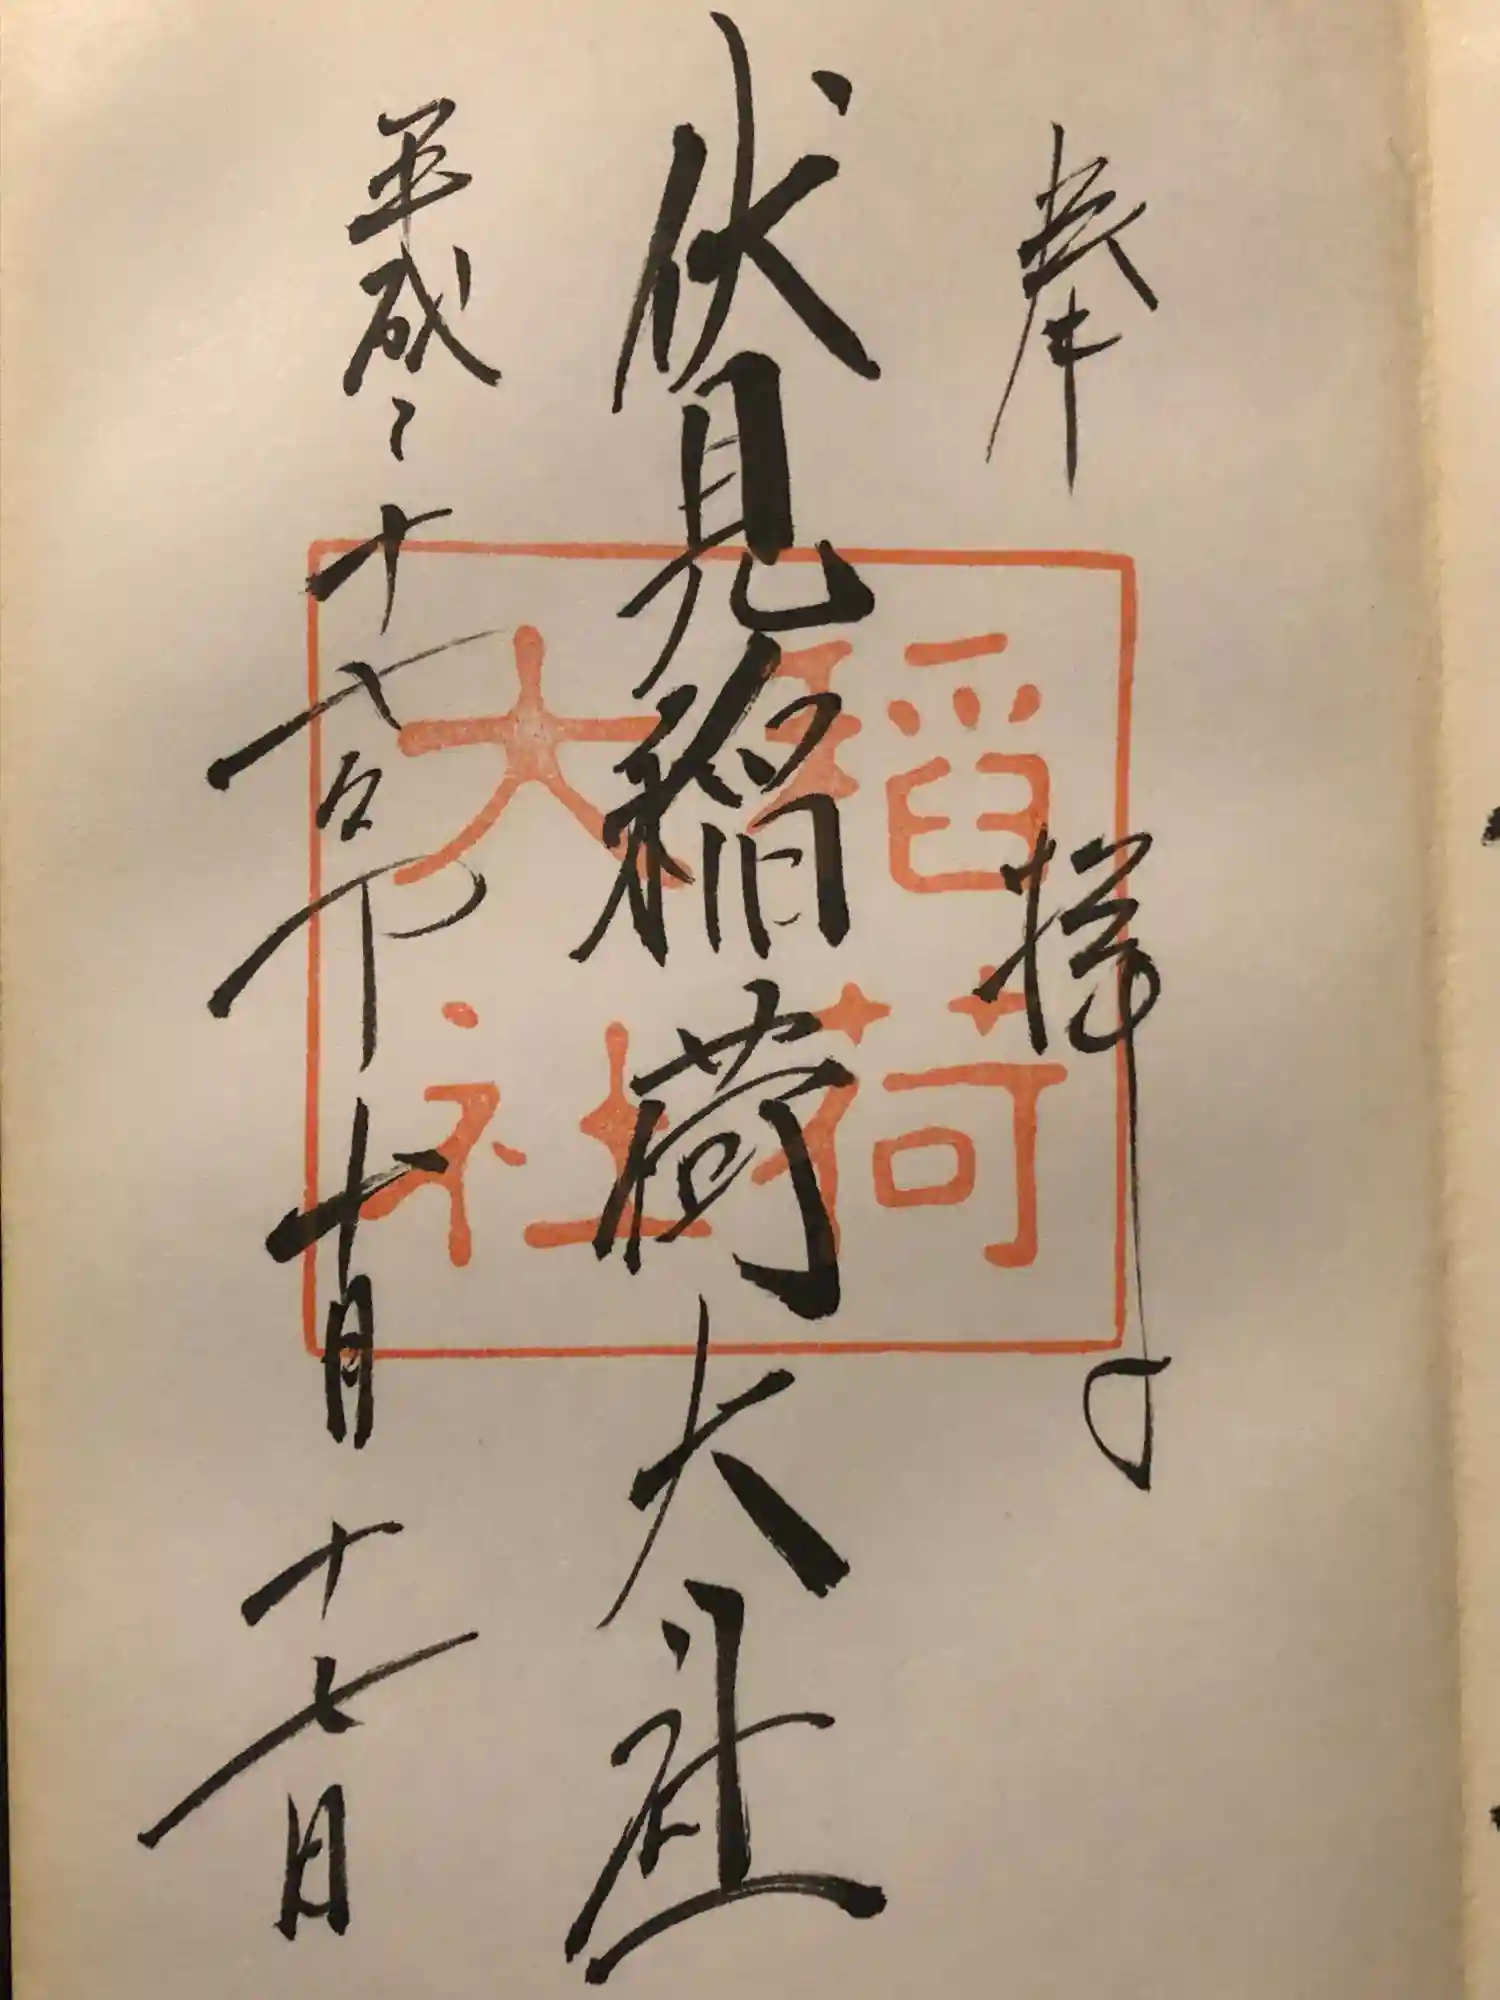 奉拝
伏見稲荷大社
平成二十七年十月十七日
稻荷
大社